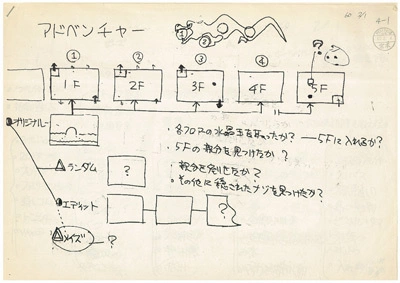 アドベンチャー
① ②
4-1
① ② ③ ④ ?
1F 2F 3F 4F 5F
オリジナル
・各フロアの水晶玉をとったか? ― 5Fに入れるか?
・5Fの敵分を見つけたか?
・敵分を倒せたか?
・その他に隠されたナゾを見つけたか?
ランダム ?
エディット ?
メイズ ?